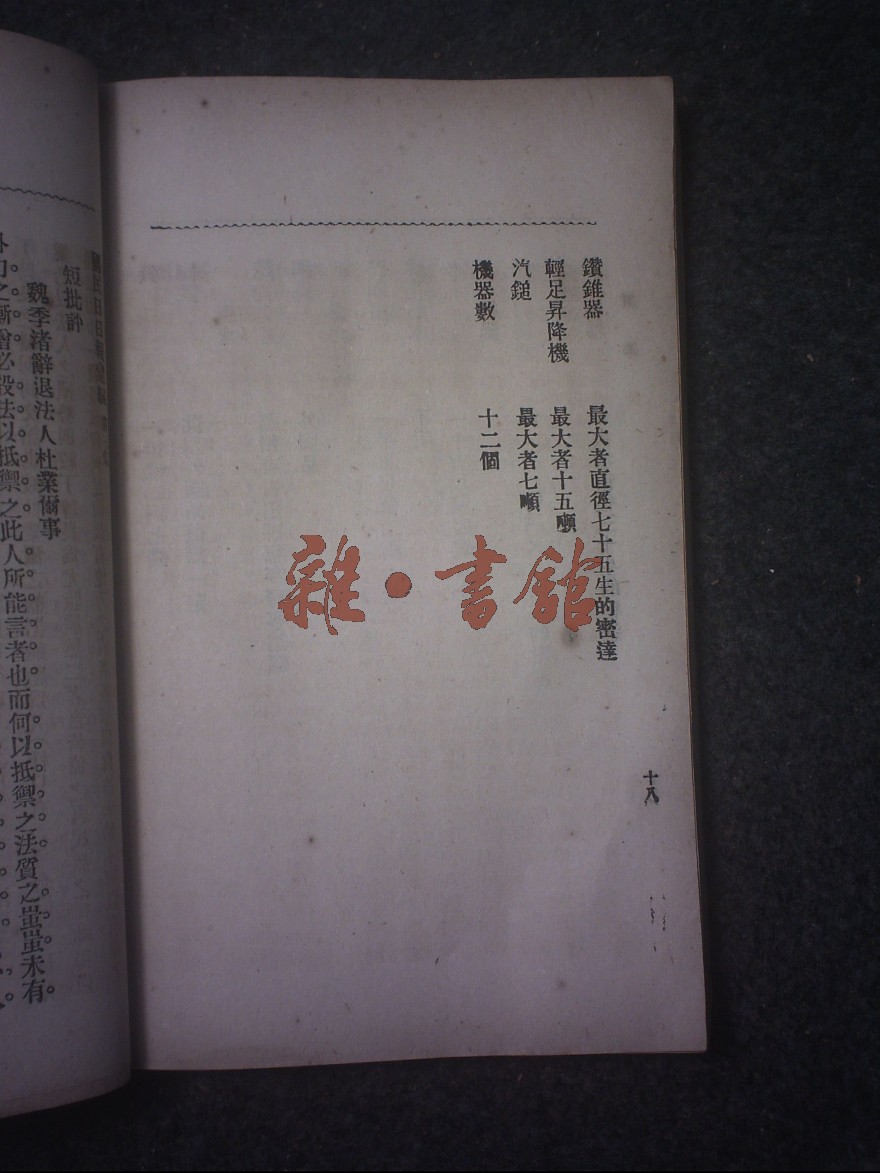 鑽錐器　最大者直徑七十五生的密達
輕足昇降機　最大者十五噸
汽鎚　最大者七噸
機器數　十二個
十八
雜·書館
短批評
魏季渚辭退法人杜業爾事
之漸增必設法以抵禦之此人所能言者也而何以抵禦之法質之蚩蚩未有